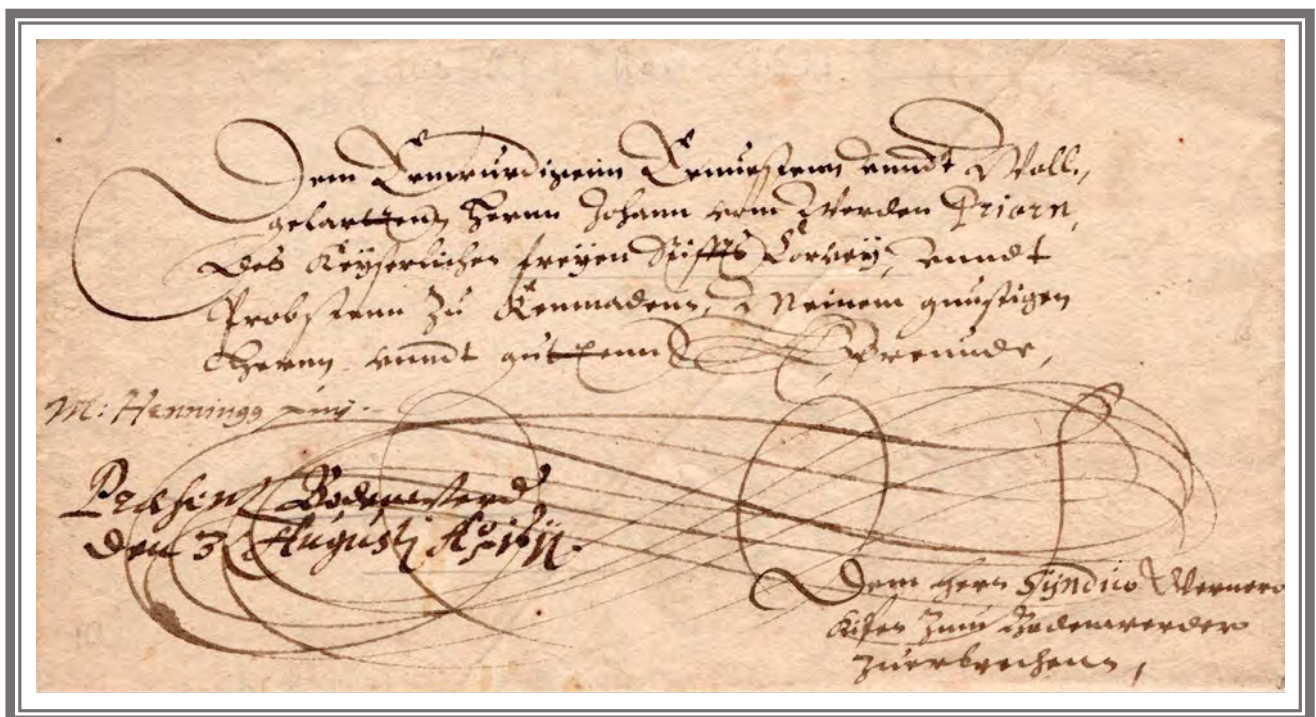 Dem Ernwurdigenn Ernuestenn vnndt Woll,
gelartten Herrn Johann vom Werden Priorn,
Des Keyserlichen freyen Stiffts Corvey, vnndt
Probstenn zu Kemnadenn, Meinem gunstigen
Herrn vnndt guttenn Freunde,
M: Henningg
Præsent Bodenwerd
den 3 Augusti Ao 1611.
Dem Hern Syndico Wernero
zum Bodenwerder
zuerbrechenn,